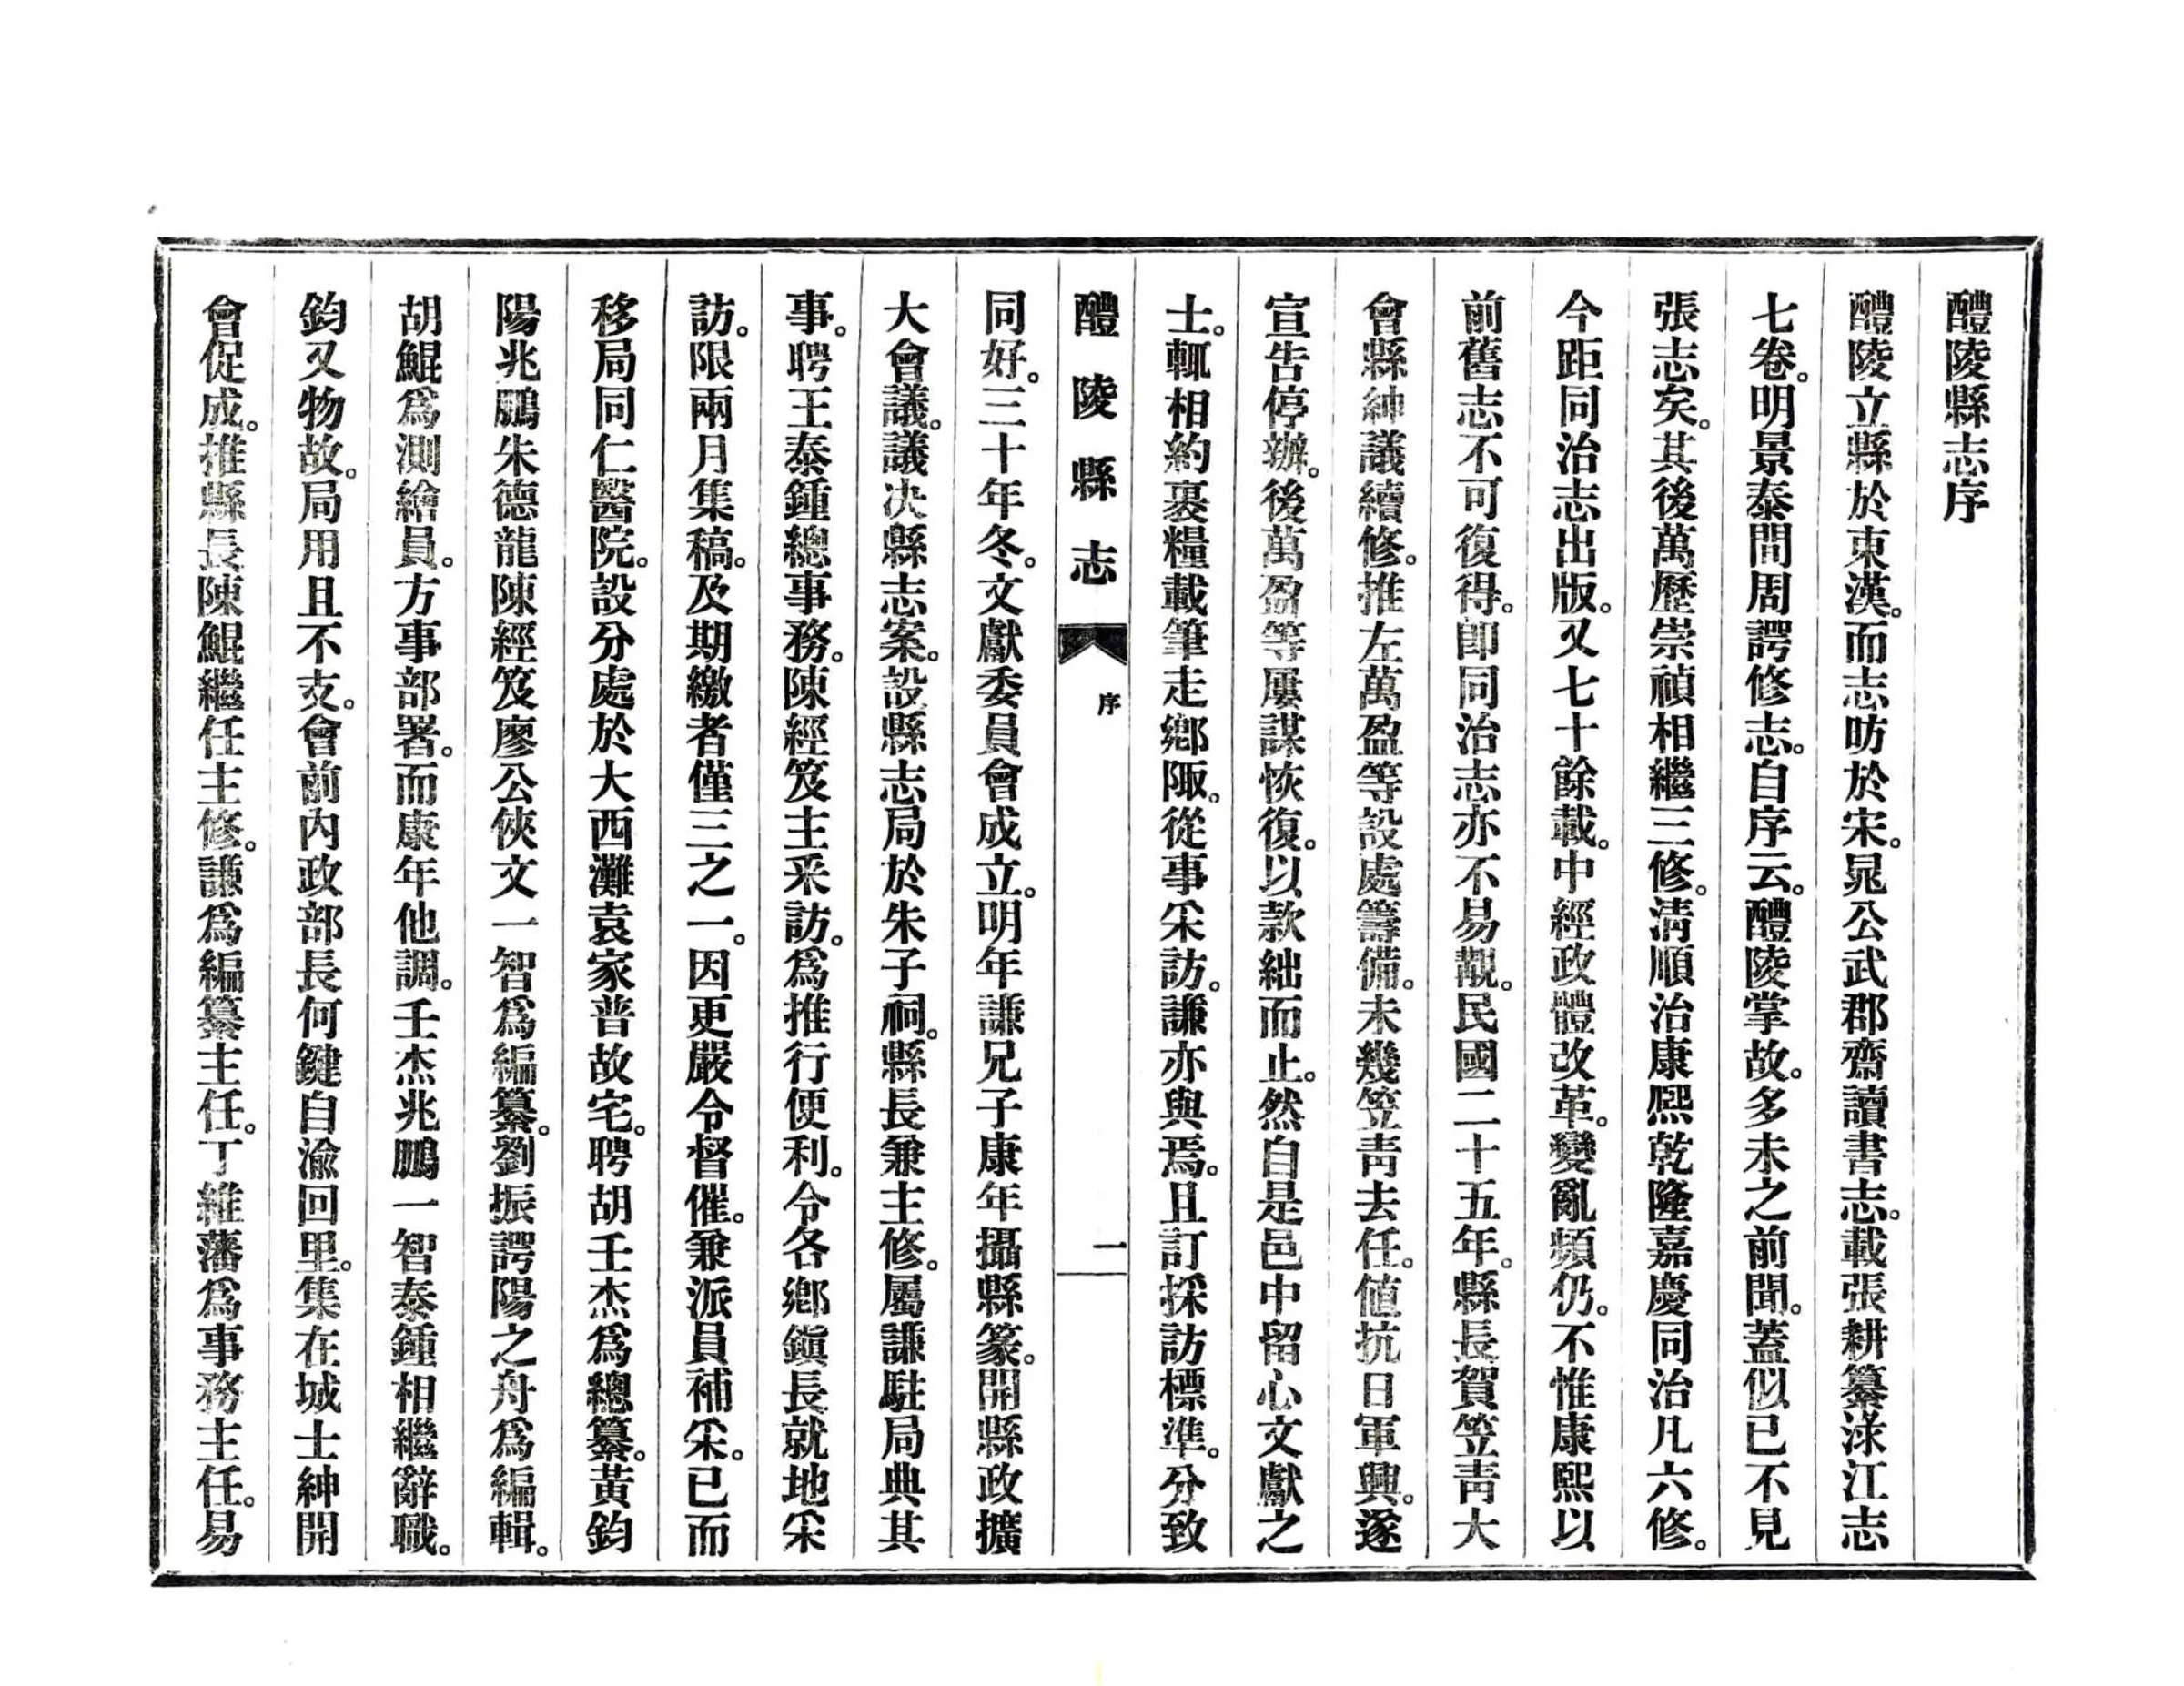 醴陵縣志序
醴陵立縣於東漢。而志昉於宋。晁公武郡齋讀書志。載張耕纂淥江志
七卷。明景泰間周諤修志。自序云。醴陵掌故。多未之前聞。蓋似已不見
張志矣。其後萬歷崇禎相繼三修。清順治康熙乾隆嘉慶同治凡六修。
今距同治志出版。又七十餘載。中經政體改革。變亂頻仍。不惟康熙以
前舊志不可復得。卽同治志亦不易覯。民國二十五年。縣長賀笠靑大
會縣紳議續修。推左萬盈等設處籌備。未幾笠靑去任。値抗日軍興。遂
宣告停辦。後萬盈等屢謀恢復。以款絀而止。然自是邑中留心文獻之
士。輒相約裹糧載筆走鄉陬。從事采訪。謙亦與焉。且訂採訪標準。分致
醴陵縣志 序 一
同好。三十年冬。文獻委員會成立。明年謙兄子康年攝縣篆。開縣政擴
大會議。議决縣志案。設縣志局於朱子祠。縣長兼主修。屬謙駐局典其
事。聘王泰鍾總事務。陳經笈主采訪。爲推行便利。令各鄉鎭長就地采
訪。限兩月集稿。及期繳者僅三之一。因更嚴令督催。兼派員補采。已而
移局同仁醫院。設分處於大西灘袁家普故宅。聘胡壬杰爲總纂。黃鈞
陽兆鵬朱德龍陳經笈廖公俠文一智爲編纂。劉振諤陽之舟爲編輯。
胡鯤爲測繪員。方事部署。而康年他調。壬杰兆鵬一智泰鍾相繼辭職。
鈞又物故。局用且不支。會前内政部長何鍵自渝回里。集在城士紳開
會促成。推縣長陳鯤繼任主修。謙爲編纂主任。丁維藩爲事務主任。易